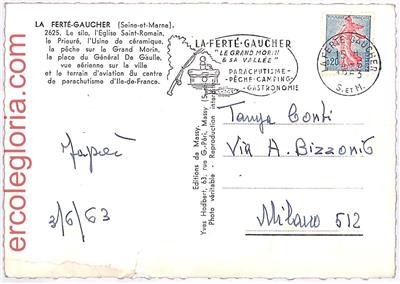 LA FERTÉ-GAUCHER (Seine-et-Marne).
2625. Le silo, l'Eglise Saint-Romain,
le Prieuré, l'Usine de céramique,
la pêche sur le Grand Morin,
la place du Général De Gaulle,
vue aérienne sur la ville
et le terrain d'aviation du centre
de parachutisme d'Ile-de-France.
LA FERTÉ-GAUCHER
"LE GRAND MORIN
& SA VALLÉE"
PARACHUTISME-
PÊCHE-CAMPING
-GASTRONOMIE
LA FERTE-GAUCHER
S. ET M.
0,20
ercolegloria.com
Editions de Massy,
Yves Hodbert, 63, rue G.-Péri, Massy
Photo véritable - Reproduction
3/6/63
Tanya Conti
Via A. Bizzonio
Milano 512